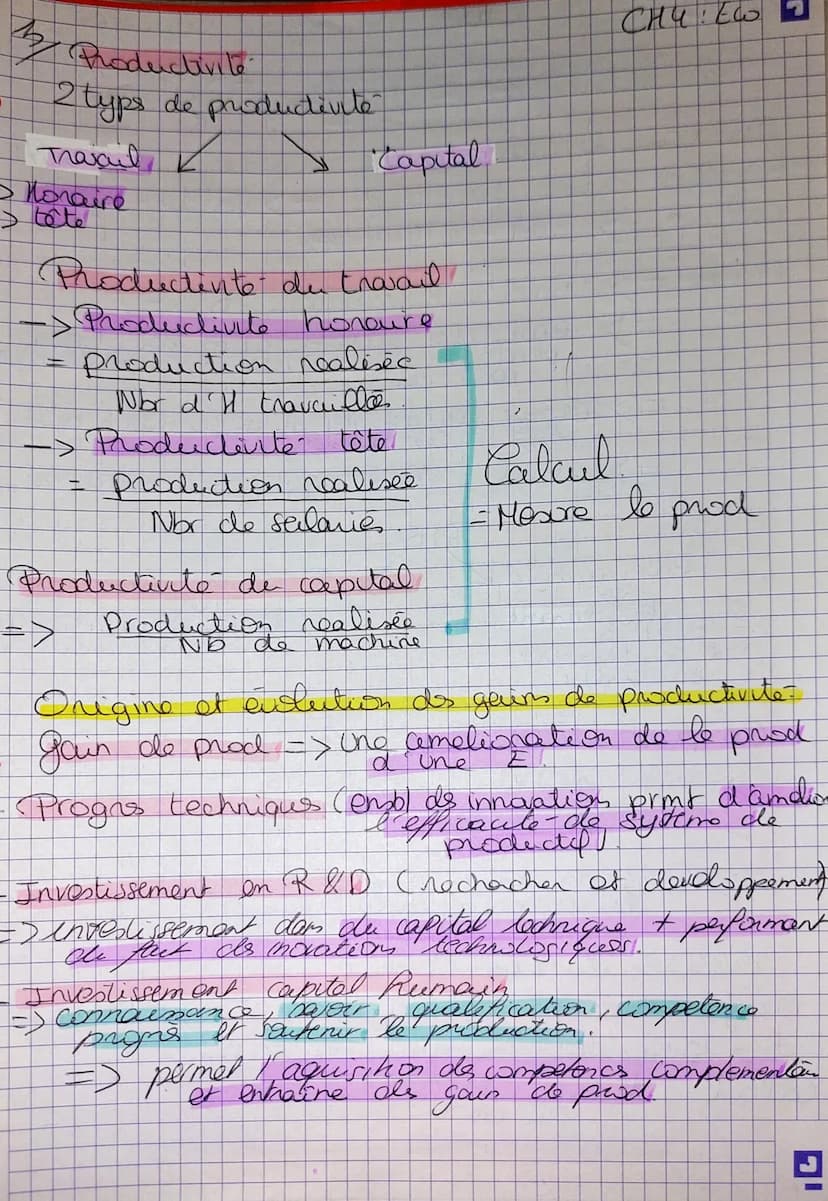 CH4 : Eco
3/ Productivité
2 typs de productivité
Travail
Capital
> Horaire
> tête
Productivité du travail
-> Productivité horaire
= production realisée
Nbr d'H travaillées
-> Productivité tête
= production realisée
Nbr de salariés.
Calcul
= Mesure la prod
Productivité de capital
=> Production realisée
Nb de machine
Origine et évolution des gains de productivité
gain de prod => une amelioration de la prod
d'une E.
- Progrns techniques (ensbl ds innovation prmt d'amélior
l'efficacité de système de
productif)
- Investissement en R&D (rechacher et developpement)
=> investissement dans du capital technique + performant
du fait des inovations technologiques.
- Investissement capital humain
=> connaissance, savoir, qualification, competence
progrès et soutenir la production.
=> permet l'aquisition des competences complémentair
et entraîne des gain de prod.